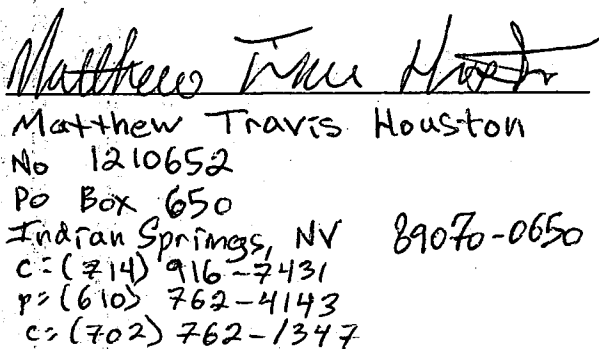 Matthew Travis Houston
Matthew Travis Houston
No 1210652
PO Box 650
Indian Springs, NV 89070-0650
c:(714) 916-7431
p:(610) 762-4143
c:(702) 762-1347